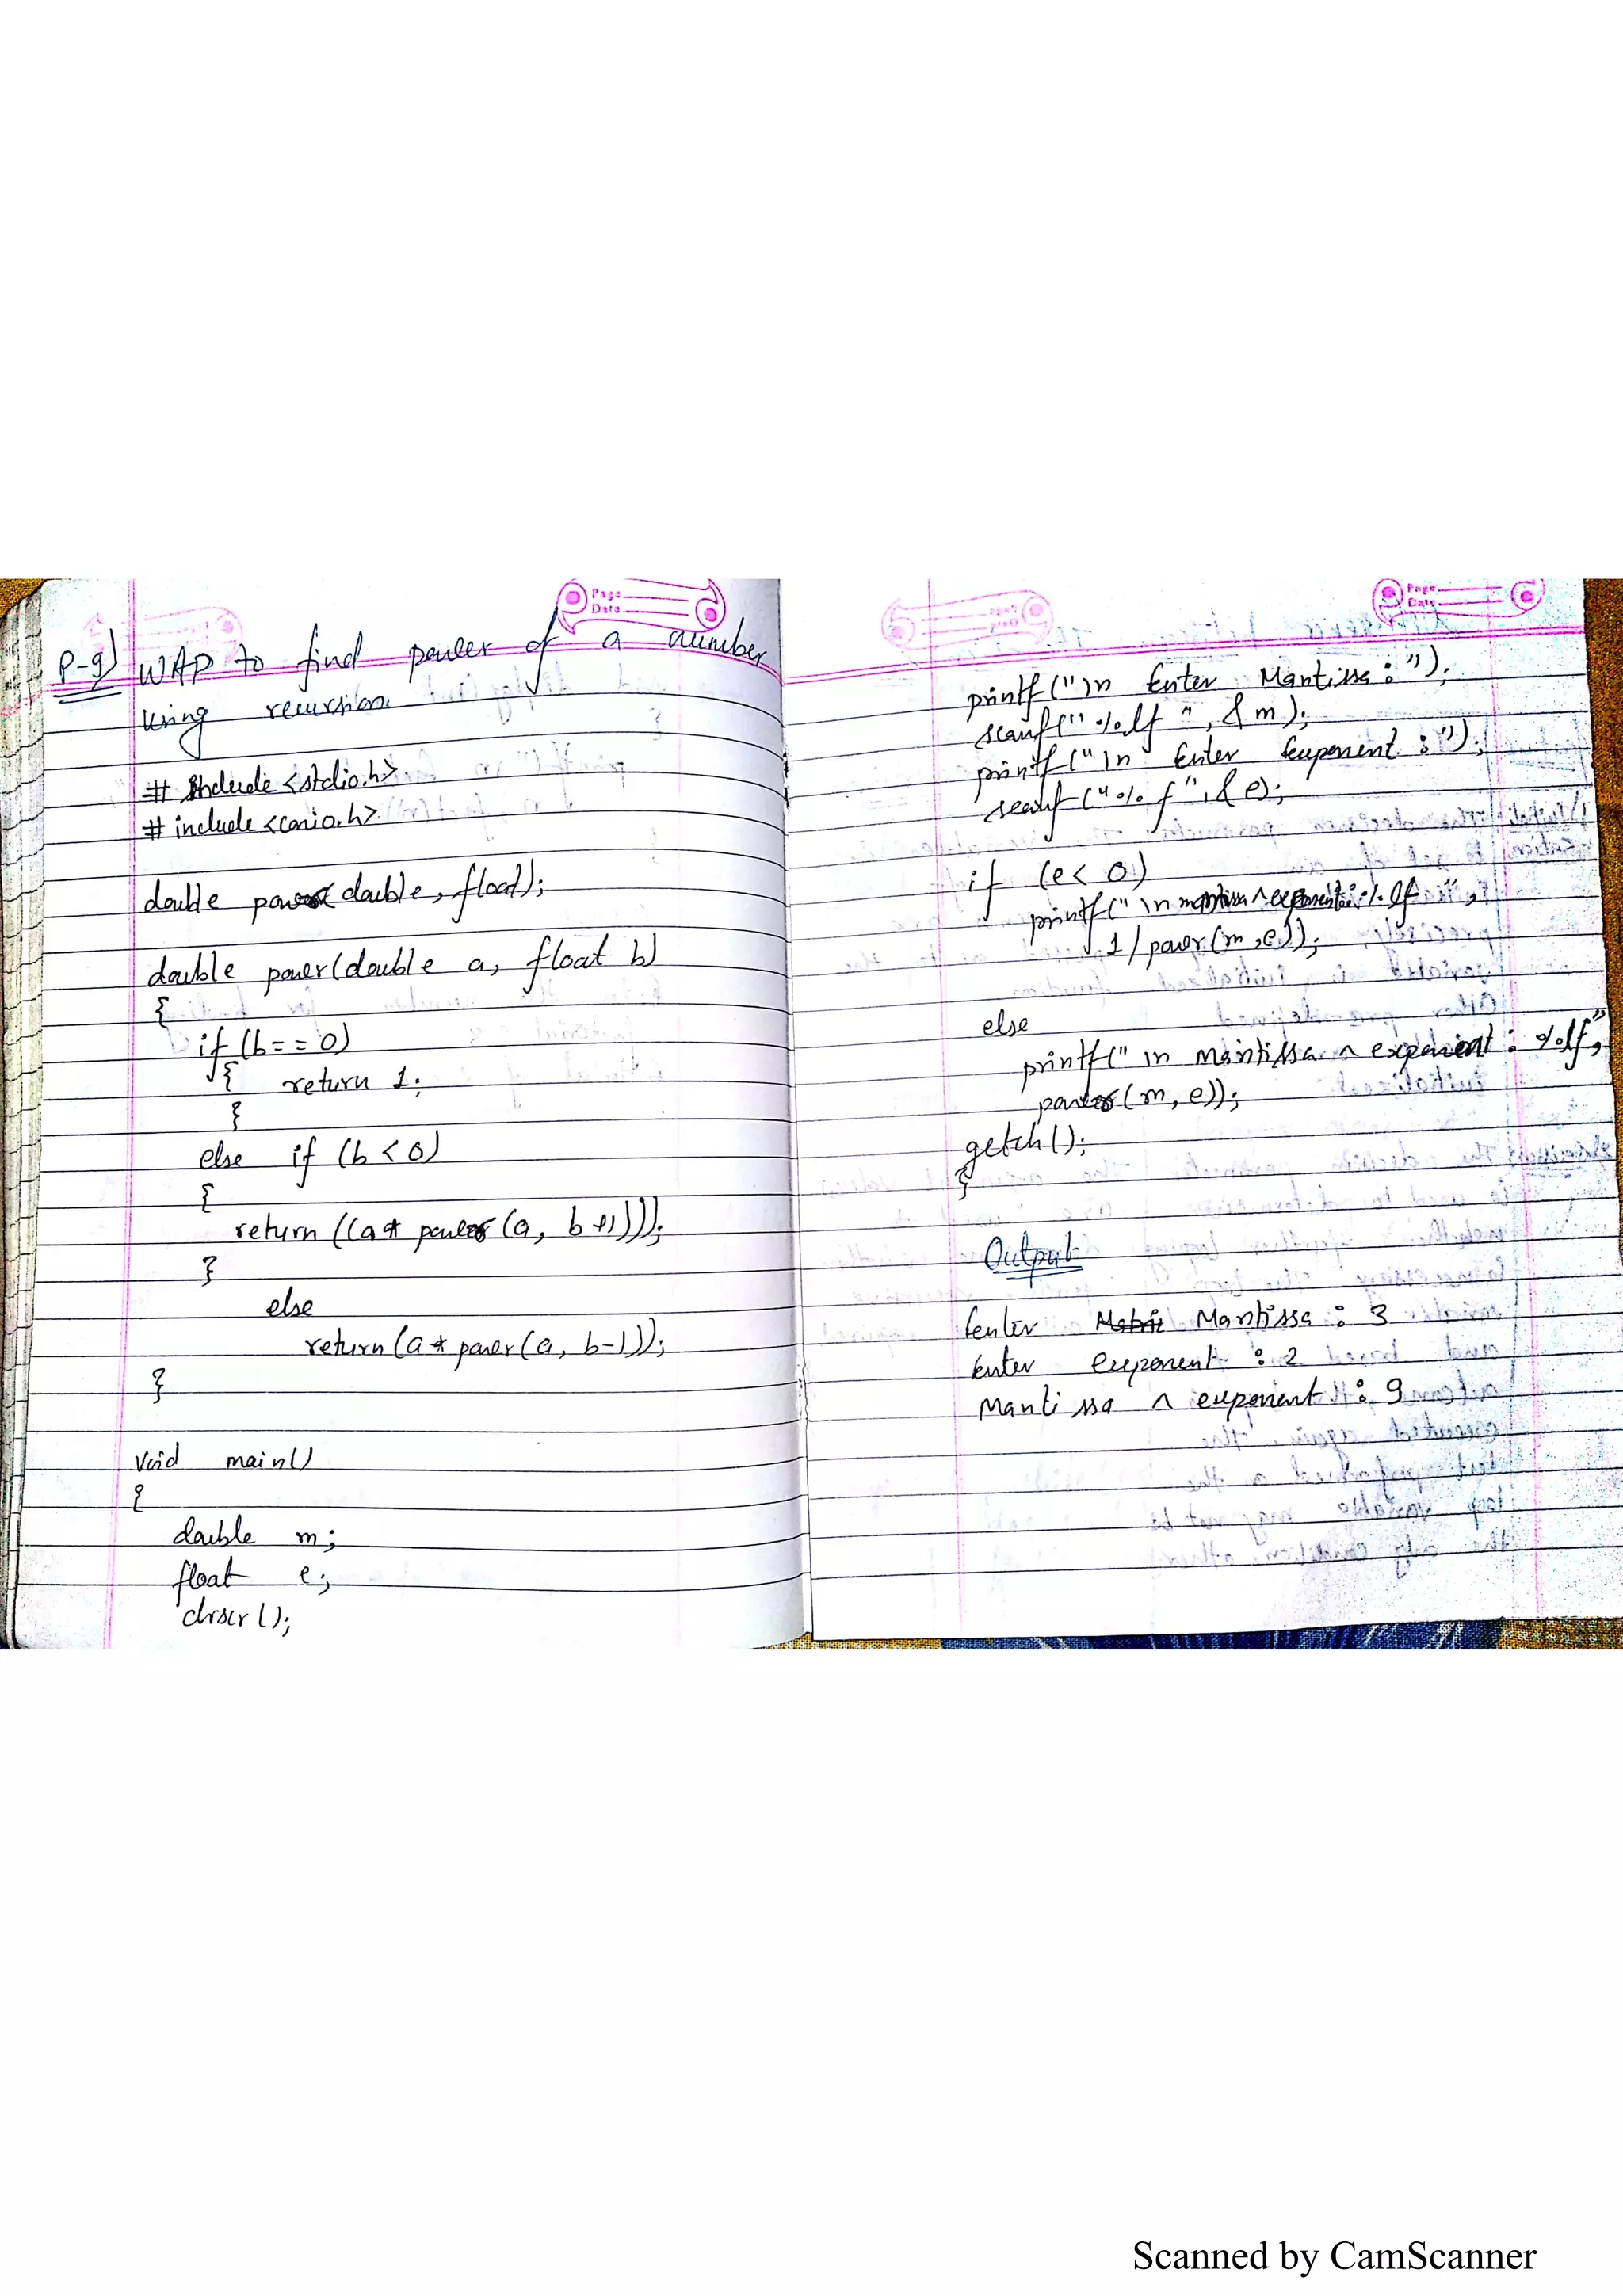 Page
Date
P-9) WAP to find power of a number
using recursion.
# include <stdio.h>
# include <conio.h>
double power(double, float);
double power(double a, float b)
{
if (b==0)
{ return 1;
}
else if (b<0)
{
return ((a* power(a, b+1)));
}
else
return (a* power(a, b-1));
}
void main()
{
double m;
float e;
clrscr();
Page
Date
printf("\n Enter Mantissa:");
scanf("%lf", &m);
printf("\n Enter Exponent:");
scanf("%f", &e);
if (e<0)
printf("\n mantissa ^ exponent: %lf",
1/power(m,e));
else
printf("\n Mantissa ^ exponent: %lf",
power(m, e));
getch();
}
Output
Enter Mantissa: 3
Enter exponent: 2
Mantissa ^ exponent: 9
Scanned by CamScanner